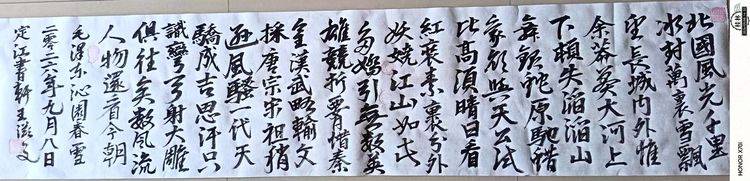 北國風光千里
冰封萬裏雪飄
望長城內外惟
余莽莽大河上
下頓失滔滔山
舞銀蛇原馳蜡
象欲與天公試
比高須晴日看
紅裝素裹兮外
妖嬈江山如此
多嬌引無數英
雄競折腰惜秦
皇漢武略輸文
採唐宗宋祖稍
遜風騷一代天
驕成吉思汗只
識彎弓射大雕
俱往矣數風流
人物還看今朝
毛澤東沁園春雪
年九月八日
定江書軒王文
HONOR X70i